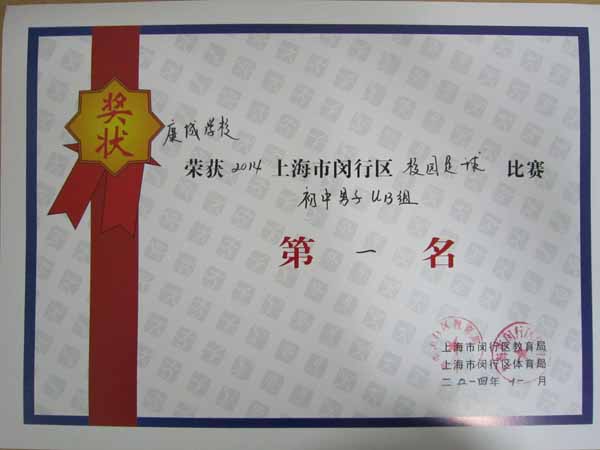 奖状
康城学校
荣获 2014 上海市闵行区 校园足球 比赛
初中男子U13组
第一名
上海市闵行区教育局
上海市闵行区体育局
二〇一四年 月